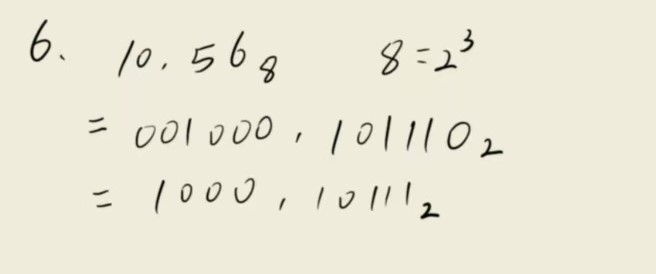 6. 10.56₈ 8=2³
= 001000.101110₂
= 1000.10111₂